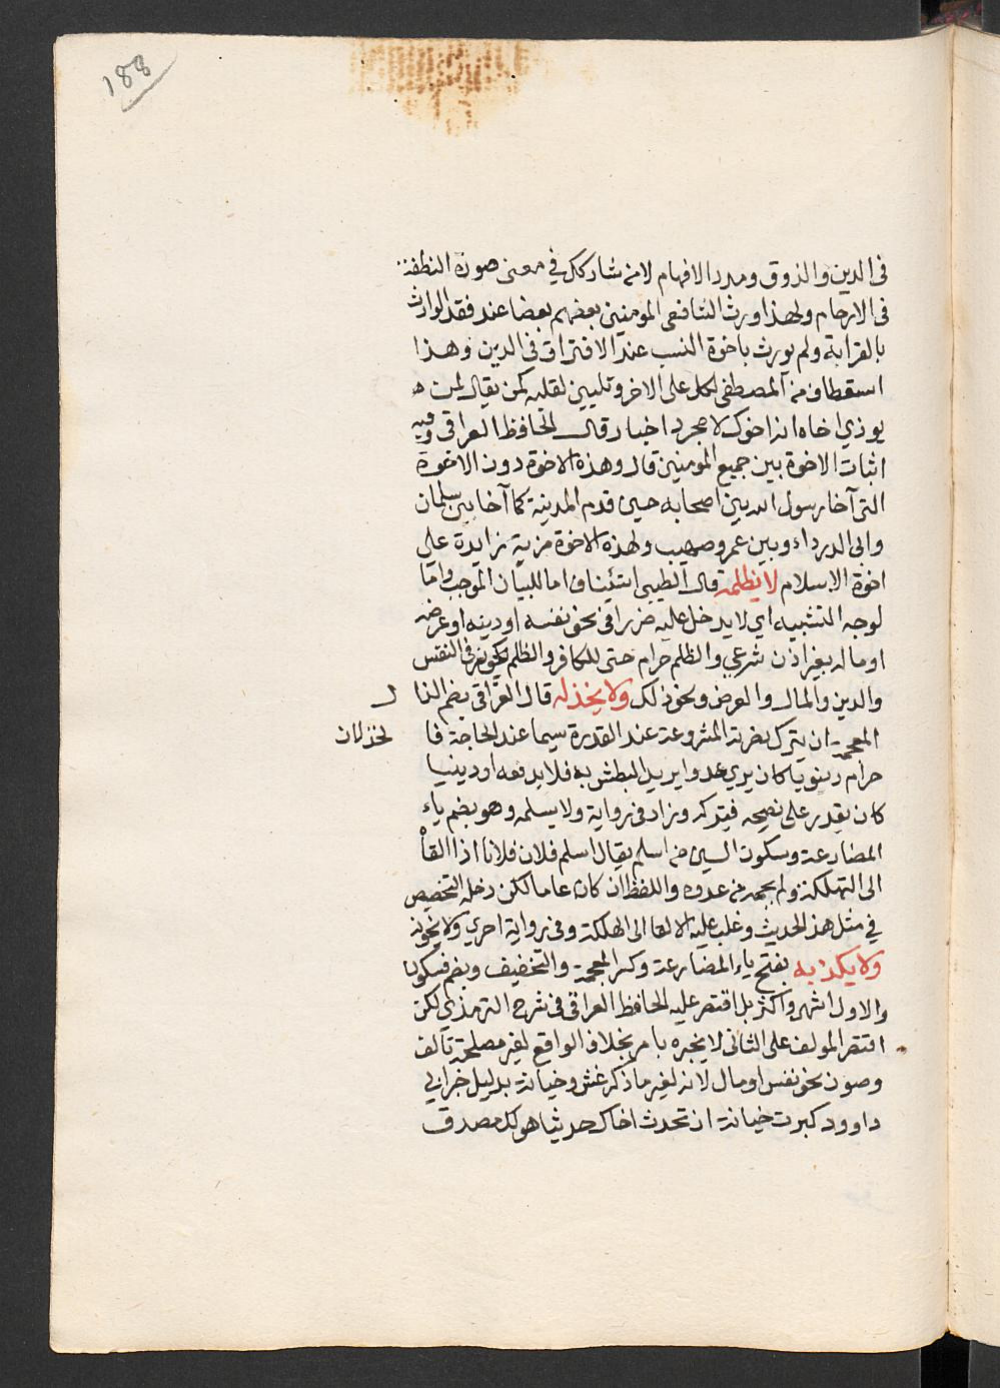 188
في الدين والذوق ومدد الافهام لانه شاركك في معنى صورة النطفة
في الارحام ولهذا ورث الشافعي المومنين بعضهم بعضا عند فقد الوارث
بالقرابة ولم يورث باخوة النسب عند الافتراق في الدين وهذا
استعطاف من المصطفى لكل على الاخر وتليين لقلبه كمن يقال لمن
يوذي اخاه انه اخوك لا مجرد اخبار قال الحافظ العراقي وفيه
اثبات الاخوة بين جميع المومنين قال وهذه الاخوة دون الاخوة
التي آخا رسول الله بين اصحابه حين قدم المدينة كما آخا بين سلمان
وابي الدرداء وبين عمر وصهيب ولهذه الاخوة مزية زايدة على
اخوة الاسلام لا يظلمه قال الطيبي استيناف اما للبيان الموجب واما
لوجه التشبيه اي لا يدخل عليه ضررا في نحو نفسه او دينه او عرضه
او ماله بغير اذن شرعي والظلم حرام حتى للكافر والظلم يكون في النفس
والدين والمال والعرض ونحو ذلك ولا يخذله قال العراقي بضم الذا ل
المعجمة ان يترك نصرته المشروعة عند القدرة سيما عند الحاجة فا لخذلان
حرام دينويا كان يري عدوا يريد البطش به فلا يدفعه او دينيا
كان يقدر على نصحه فيتركه وزاد في رواية ولا يسلمه وهو بضم ياء
المضارعة وسكون السين من اسلم يقال اسلم فلان فلانا اذا القاه
الى التهلكة ولم يحمه من عدوه واللفظ ان كان عاما لكن دخله التخصيص
في مثل هذ الحديث وغلب عليه الالقا الى الهلكة وفي رواية اخري ولا يخونه
ولا يكذبه بفتح ياء المضارعة وكسر المعجمة والتخفيف وبضم فسكون
والاول اشهر واكثر بل اقتصر عليه الحافظ العراقي في شرح الترمذي لكن
اقتصر المولف على الثاني لا يخبره بامر بخلاف الواقع لغير مصلحة تآلف
وصون نحو نفس او مال لانه لغير ما ذكر غش وخيانة بدليل خبر ابي
داوود كبرت خيانة ان تحدث اخاك حديثا هو لك مصدق